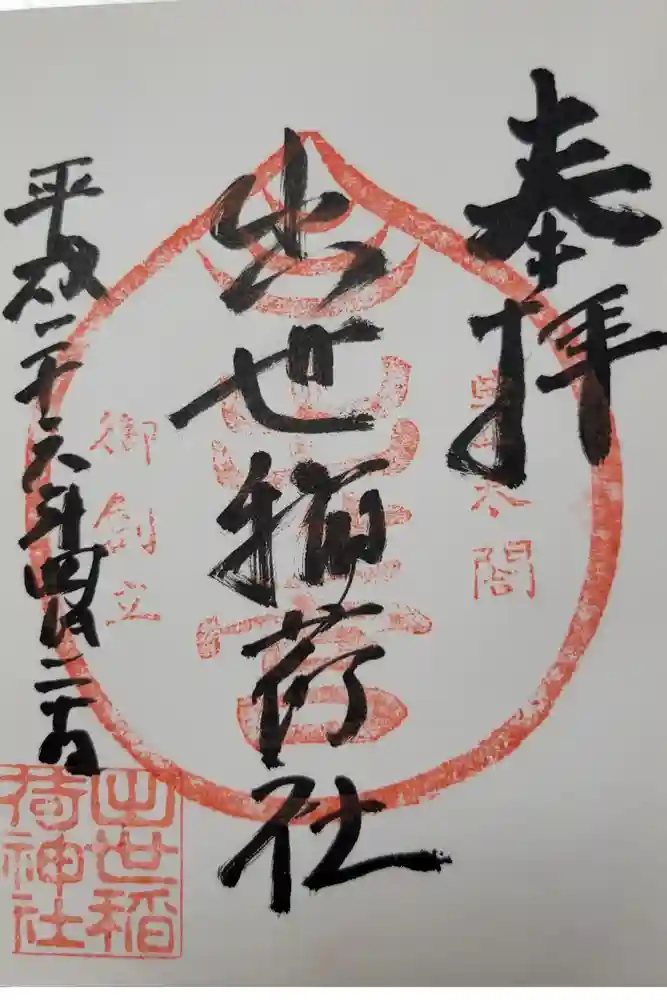 奉拝
豊太閤
出世稲荷社
御創立
平成二十六年四月二十日
出世稲
荷神社